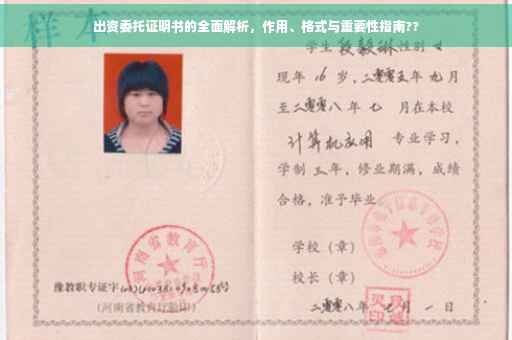 出资委托证明书的全面解析，作用、格式与重要性指南??
样本
学生段毅琳性别女
现年16岁，二零零五年九月
至二零零八年七月在本校
计算机应用 专业学习，
学制三年，修业期满，成绩
合格，准予毕业
学校（章）
校长（章）
二零零八年七月一日
河南省教育厅
豫教职专证字
（河南省教育厅验印）